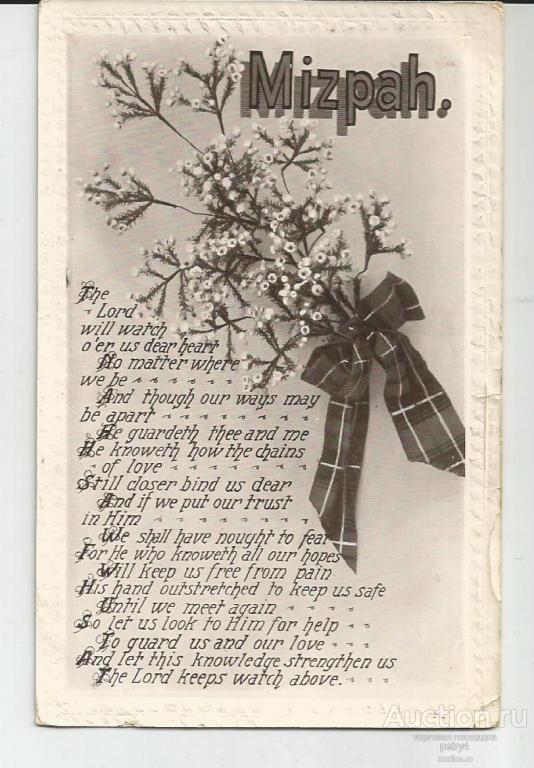 Mizpah.
The
Lord
will watch
o'er us dear heart
No matter where
we be
And though our ways may
be apart
He guardeth thee and me
He knoweth how the chains
of love
Still closer bind us dear
And if we put our trust
in Him
We shall have nought to fear
For He who knoweth all our hopes
Will keep us free from pain
His hand outstretched to keep us safe
Until we meet again
So let us look to Him for help
To guard us and our love
And let this knowledge strengthen us
The Lord keeps watch above.
Auction.ru
торговая площадка
petry4
auction.ru